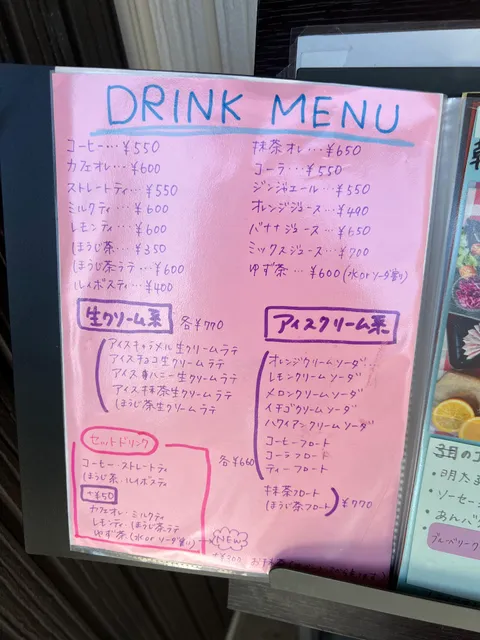 DRINK MENU
コーヒー…¥550
カフェオレ…¥600
ストレートティ…¥550
ミルクティ…¥600
レモンティ…¥600
ほうじ茶…¥350
ほうじ茶ラテ…¥600
ルイボスティ…¥400
抹茶オレ…¥650
コーラ…¥550
ジンジャエール…¥550
オレンジジュース…¥490
バナナジュース…¥650
ミックスジュース…¥700
ゆず茶…¥600(水orソーダ割り)
生クリーム系 各¥770
アイスキャラメル生クリームラテ
アイスチョコ生クリームラテ
アイスハニー生クリームラテ
アイス抹茶生クリームラテ
ほうじ茶生クリームラテ
アイスクリーム系
オレンジクリームソーダ
レモンクリームソーダ
メロンクリームソーダ
イチゴクリームソーダ
ハワイアンクリームソーダ
コーヒーフロート
コーラフロート
ティーフロート
各¥660
抹茶フロート
ほうじ茶フロート
¥770
セットドリンク
コーヒー・ストレートティ
ほうじ茶・ルイボスティ
+¥50
カフェオレ・ミルクティ
レモンティ・ほうじ茶ラテ
ゆず茶(水orソーダ割り)
NEW
3月の
・明太
・ソーセー
・あんバ
ブルーベリーク